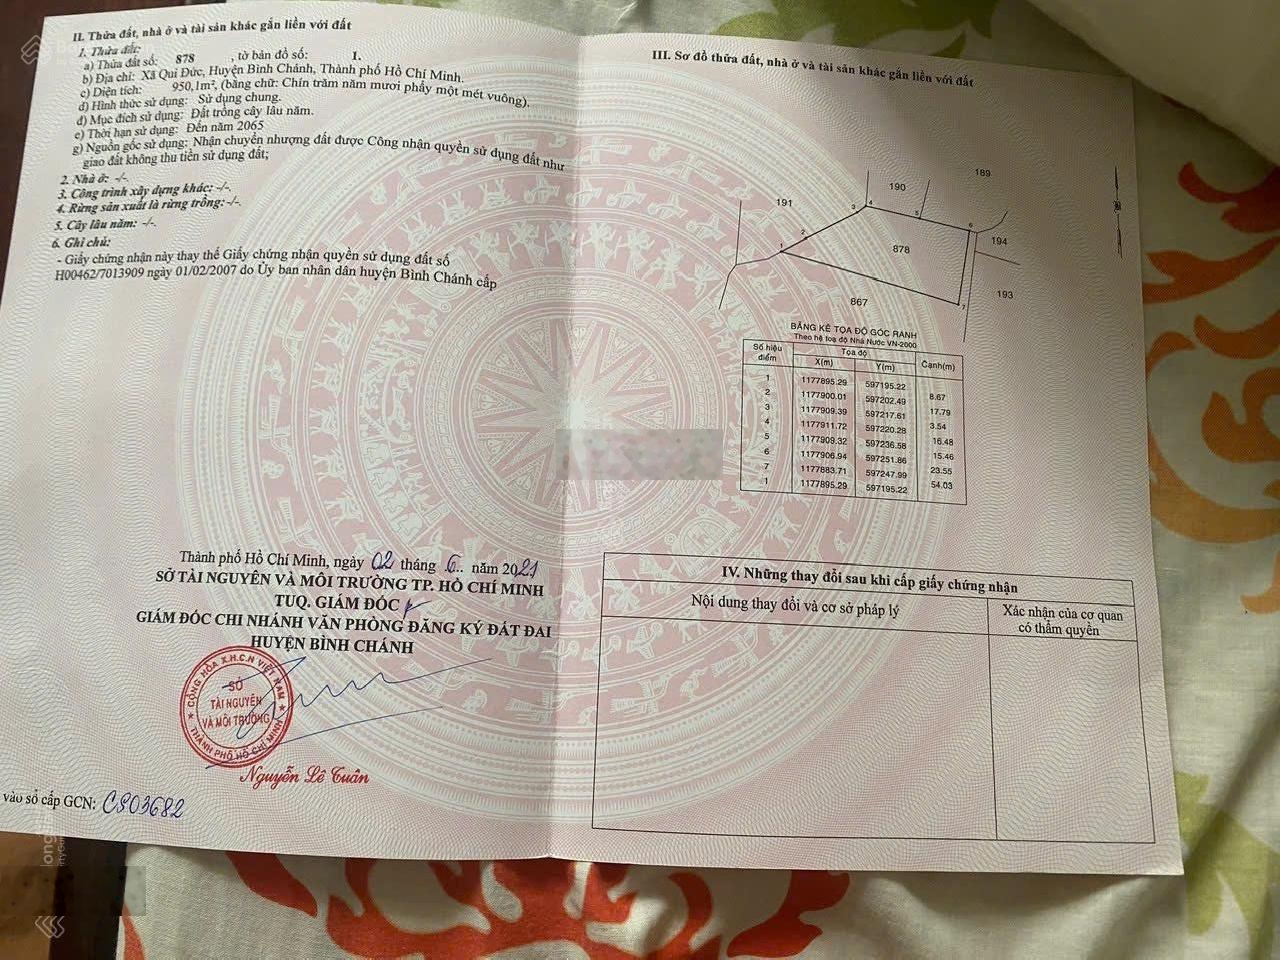 II. Thửa đất, nhà ở và tài sản khác gắn liền với đất
1. Thửa đất:
a) Thửa đất số: 878 , tờ bản đồ số: 1.
b) Địa chỉ: Xã Qui Đức, Huyện Bình Chánh, Thành phố Hồ Chí Minh.
c) Diện tích: 950,1m², (bằng chữ: Chín trăm năm mươi phẩy một mét vuông).
d) Hình thức sử dụng: Sử dụng chung.
đ) Mục đích sử dụng: Đất trồng cây lâu năm.
e) Thời hạn sử dụng: Đến năm 2065
g) Nguồn gốc sử dụng: Nhận chuyển nhượng đất được Công nhận quyền sử dụng đất như
giao đất không thu tiền sử dụng đất;
2. Nhà ở: -/-.
3. Công trình xây dựng khác: -/-.
4. Rừng sản xuất là rừng trồng: -/-.
5. Cây lâu năm: -/-.
6. Ghi chú:
- Giấy chứng nhận này thay thế Giấy chứng nhận quyền sử dụng đất số
H00462/7013909 ngày 01/02/2007 do Ủy ban nhân dân huyện Bình Chánh cấp
Thành phố Hồ Chí Minh, ngày 02 tháng 6.. năm 2021
SỞ TÀI NGUYÊN VÀ MÔI TRƯỜNG TP. HỒ CHÍ MINH
TUQ. GIÁM ĐỐC
GIÁM ĐỐC CHI NHÁNH VĂN PHÒNG ĐĂNG KÝ ĐẤT ĐAI
HUYỆN BÌNH CHÁNH
CỘNG HÒA X.H.C.N VIỆT NAM
SỞ
TÀI NGUYÊN
VÀ MÔI TRƯỜNG
THÀNH PHỐ HỒ CHÍ MINH
Nguyễn Lê Tuân
vào sổ cấp GCN: CS03682
III. Sơ đồ thửa đất, nhà ở và tài sản khác gắn liền với đất
189
190
191
3 4
5
6
2
1
194
878
193
867
7
BẢNG KÊ TỌA ĐỘ GÓC RANH
Theo hệ toạ độ Nhà Nước VN-2000
Số hiệu điểm Tọa độ Cạnh(m)
X(m) Y(m)
1 1177895.29 597195.22
8.67
2 1177900.01 597202.49
17.79
3 1177909.39 597217.61
3.54
4 1177911.72 597220.28
16.48
5 1177909.32 597236.58
15.46
6 1177906.94 597251.86
23.55
7 1177883.71 597247.99
54.03
1 1177895.29 597195.22
IV. Những thay đổi sau khi cấp giấy chứng nhận
Nội dung thay đổi và cơ sở pháp lý
Xác nhận của cơ quan
có thẩm quyền